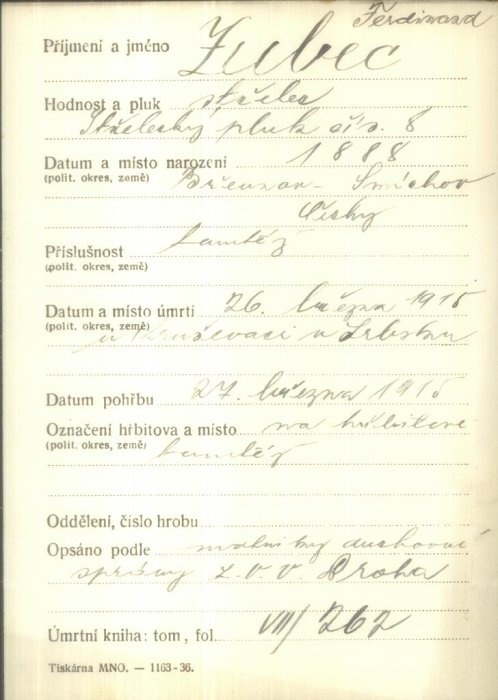 Ferdinand
Příjmení a jméno Zubec
Hodnost a pluk střelec
Střelecký pluk čís. 8
Datum a místo narození 1888
(polit. okres, země) Smíchov
Čechy
Příslušnost tamtéž
(polit. okres, země)
Datum a místo úmrtí 26. března 1915
(polit. okres, země) v Kruševaci v Srbsku
Datum pohřbu 27. března 1915
Označení hřbitova a místo na hřbitově
(polit. okres, země) tamtéž
Oddělení, číslo hrobu
Opsáno podle matriky duchovní
správy Z. V. V. Praha
Úmrtní kniha: tom, fol. VII/262
Tiskárna MNO. — 1163-36.